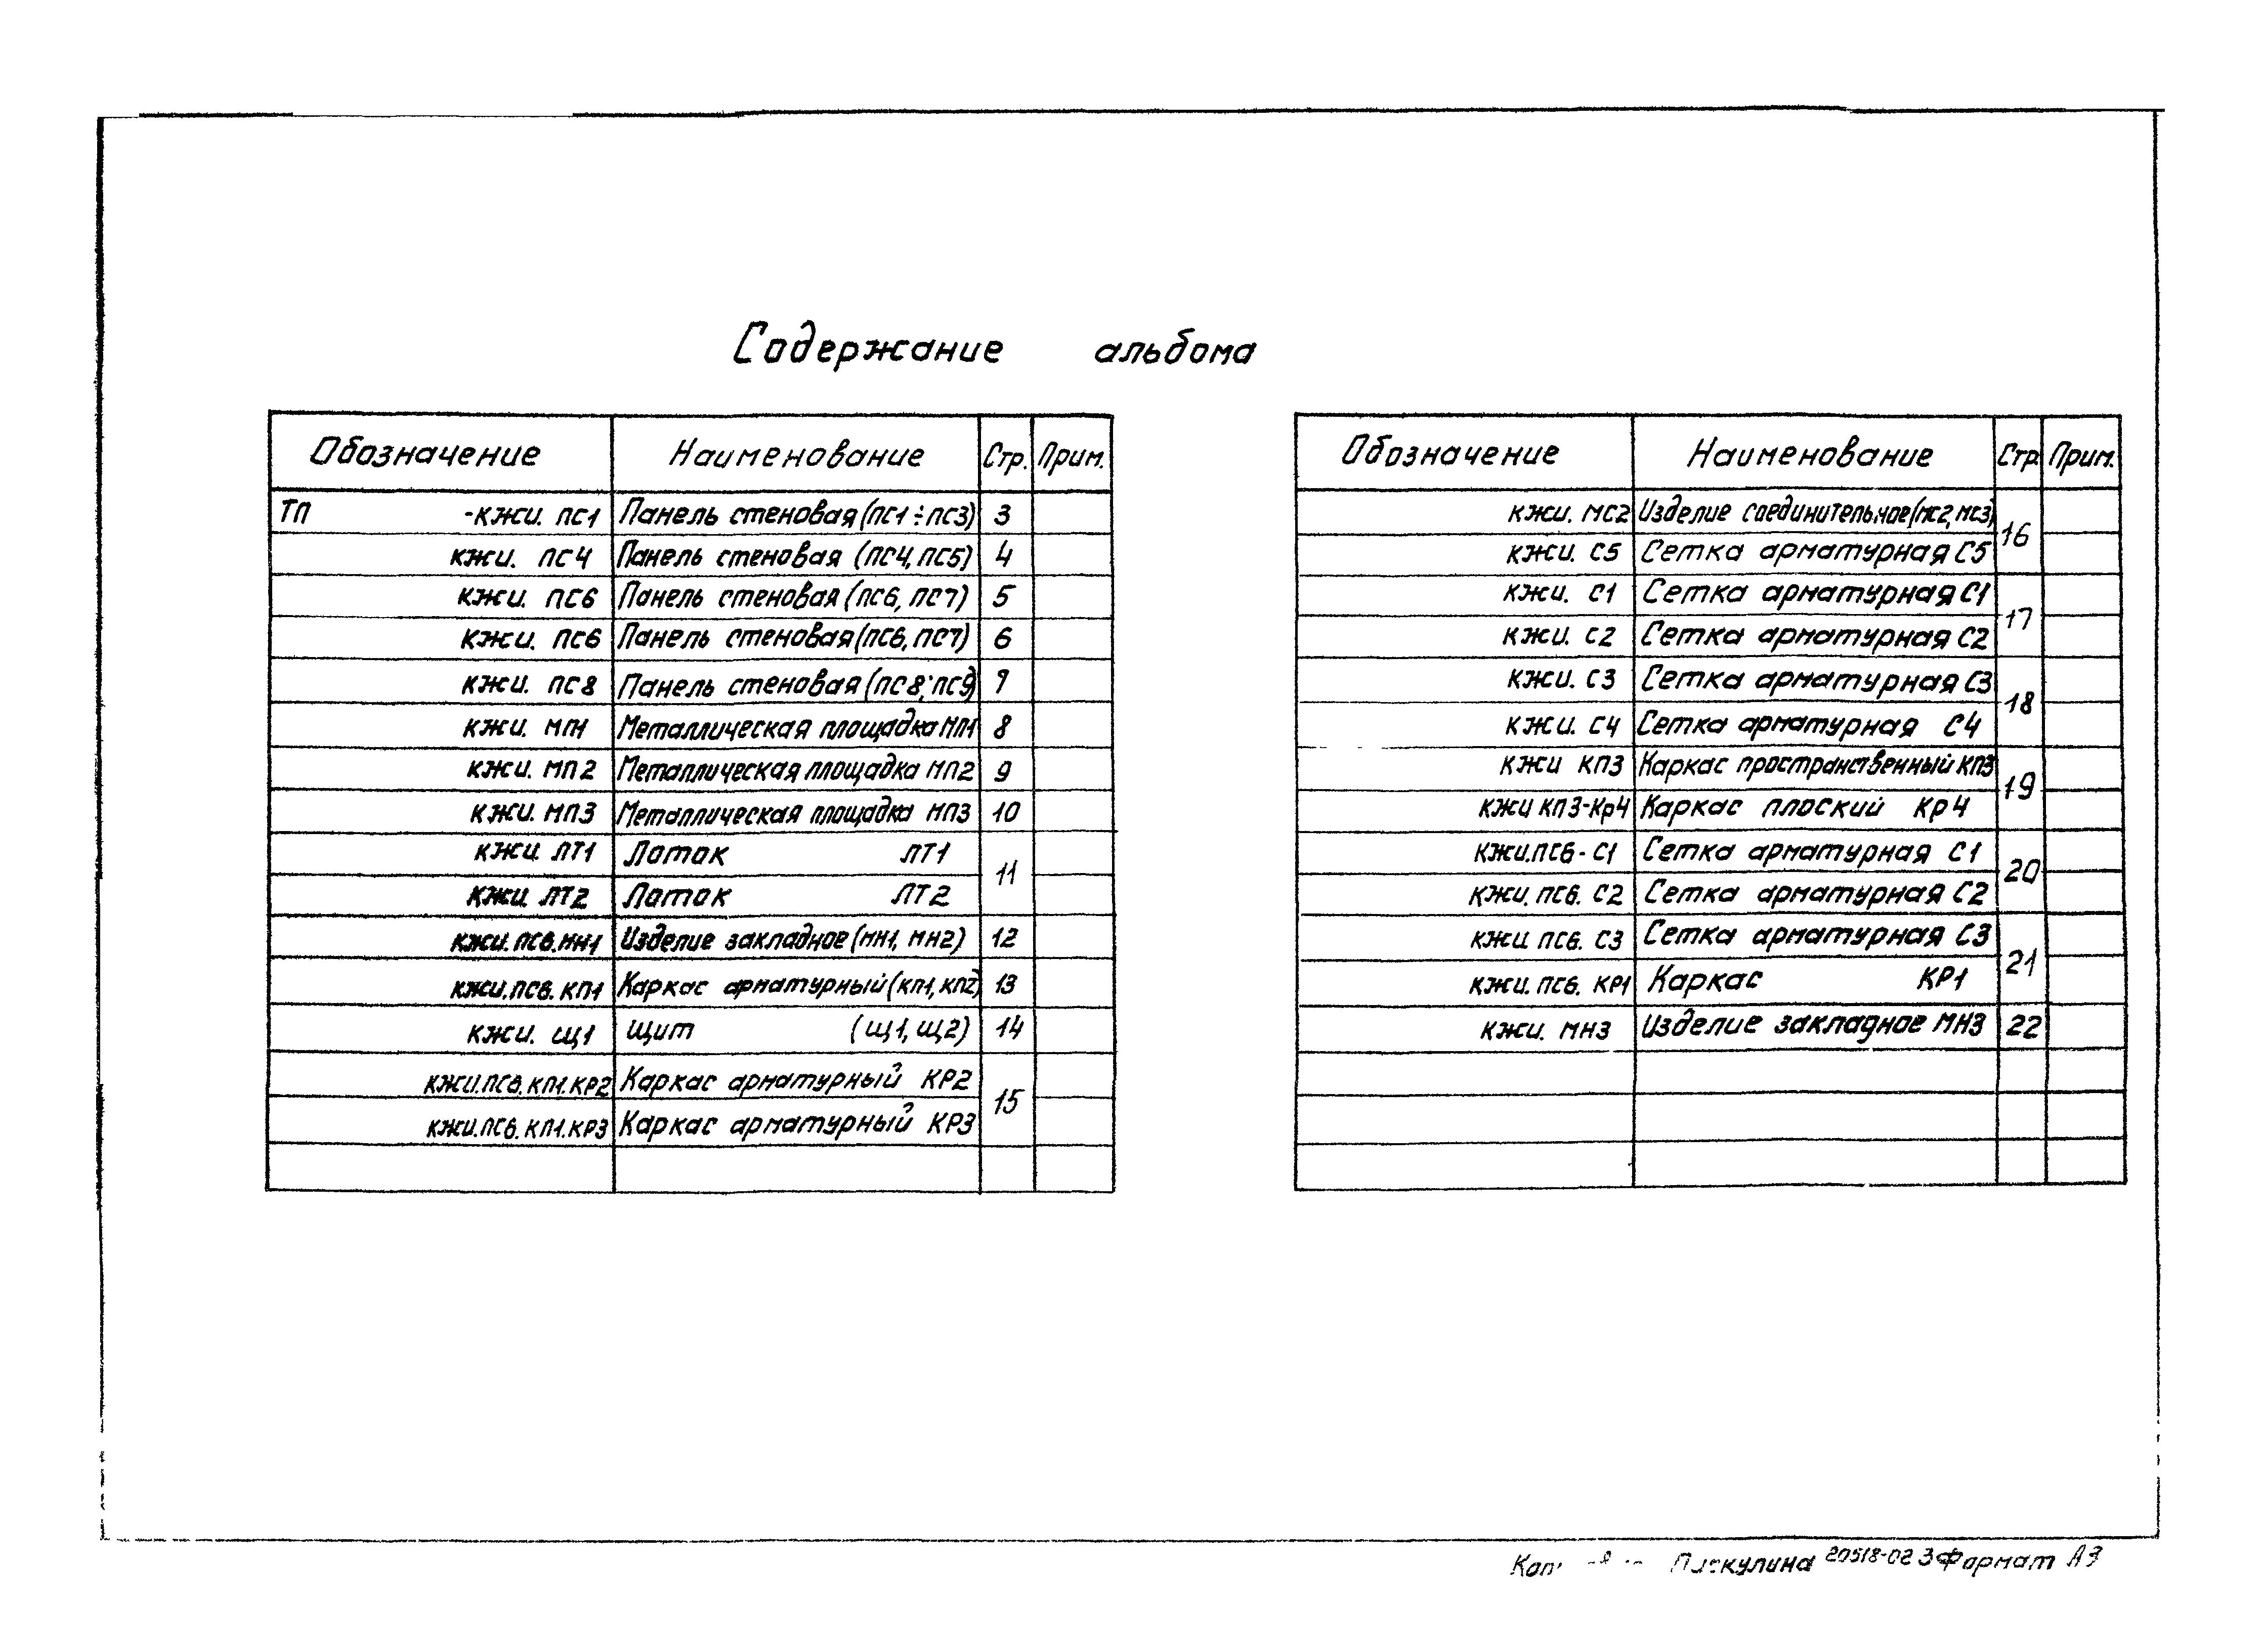 Содержание альбома
Обозначение Наименование Стр. Прим.
ТП -КЖИ. ПС1 Панель стеновая (ПС1÷ПС3) 3
КЖИ. ПС4 Панель стеновая (ПС4, ПС5) 4
КЖИ. ПС6 Панель стеновая (ПС6, ПС7) 5
КЖИ. ПС6 Панель стеновая (ПС6, ПС7) 6
КЖИ. ПС8 Панель стеновая (ПС8; ПС9) 7
КЖИ. МП1 Металлическая площадка МП1 8
КЖИ. МП2 Металлическая площадка МП2 9
КЖИ. МП3 Металлическая площадка МП3 10
КЖИ ЛТ1 Лоток ЛТ1 11
КЖИ ЛТ2 Лоток ЛТ2
КЖИ.ПС6.МН1 Изделие закладное (МН1, МН2) 12
КЖИ.ПС6.КП1 Каркас арматурный (КП1, КП2) 13
КЖИ. Щ1 Щит (Щ1, Щ2) 14
КЖИ.ПС6.КП1.КР2 Каркас арматурный КР2 15
КЖИ.ПС6.КП1.КР3 Каркас арматурный КР3
Обозначение Наименование Стр Прим.
КЖИ. МС2 Изделие соединительное (МС2, МС3) 16
КЖИ. С5 Сетка арматурная С5
КЖИ. С1 Сетка арматурная С1 17
КЖИ. С2 Сетка арматурная С2
КЖИ. С3 Сетка арматурная С3 18
КЖИ. С4 Сетка арматурная С4
КЖИ КП3 Каркас пространственный КП3 19
КЖИ КП3-Кр4 Каркас плоский Кр4
КЖИ.ПС6-С1 Сетка арматурная С1 20
КЖИ.ПС6. С2 Сетка арматурная С2
КЖИ ПС6. С3 Сетка арматурная С3 21
КЖИ.ПС6. КР1 Каркас КР1
КЖИ. МН3 Изделие закладное МН3 22
20518-02 3 Формат А3